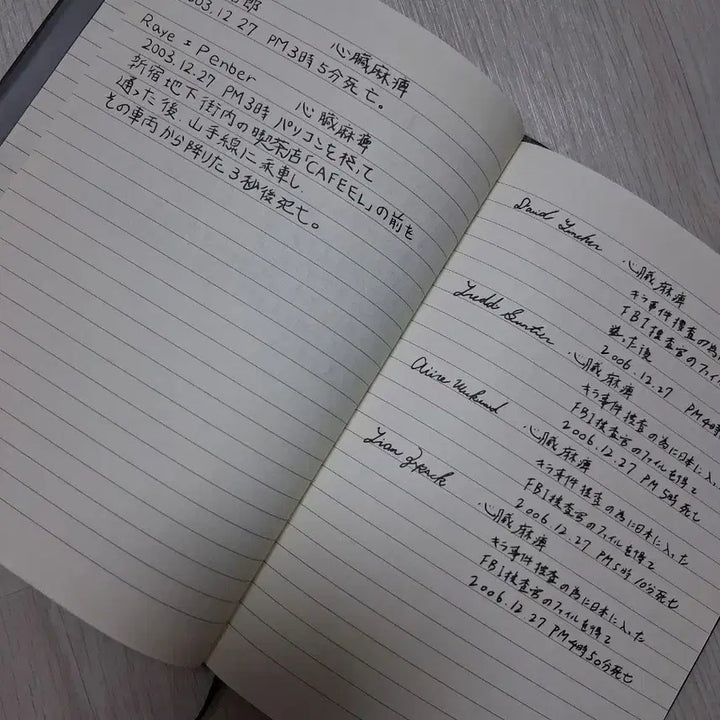 郎
2003.12.27 PM3時5分死亡。
心臓麻痺
Raye=Penber
心臓麻痺
2003.12.27 PM3時 パソコンを捨て
新宿地下街内の喫茶店「CAFEEL」の前を
通った後、山手線に乗車し、
その車両から降りた3秒後死亡。
心臓麻痺
キラ事件捜査の為
FBI捜査官のファイル
た後
2006.12.27 PM4時
心臓麻痺
キラ事件捜査の為に日本に入った
FBI捜査官のファイルを得て
2006.12.27 PM5時死亡
心臓麻痺
キラ事件捜査の為に日本に入った
FBI捜査官のファイルを得て
2006.12.27 PM5時10分死亡
心臓麻痺
キラ事件捜査の為に日本に入った
FBI捜査官のファイルを得て
2006.12.27 PM4時50分死亡